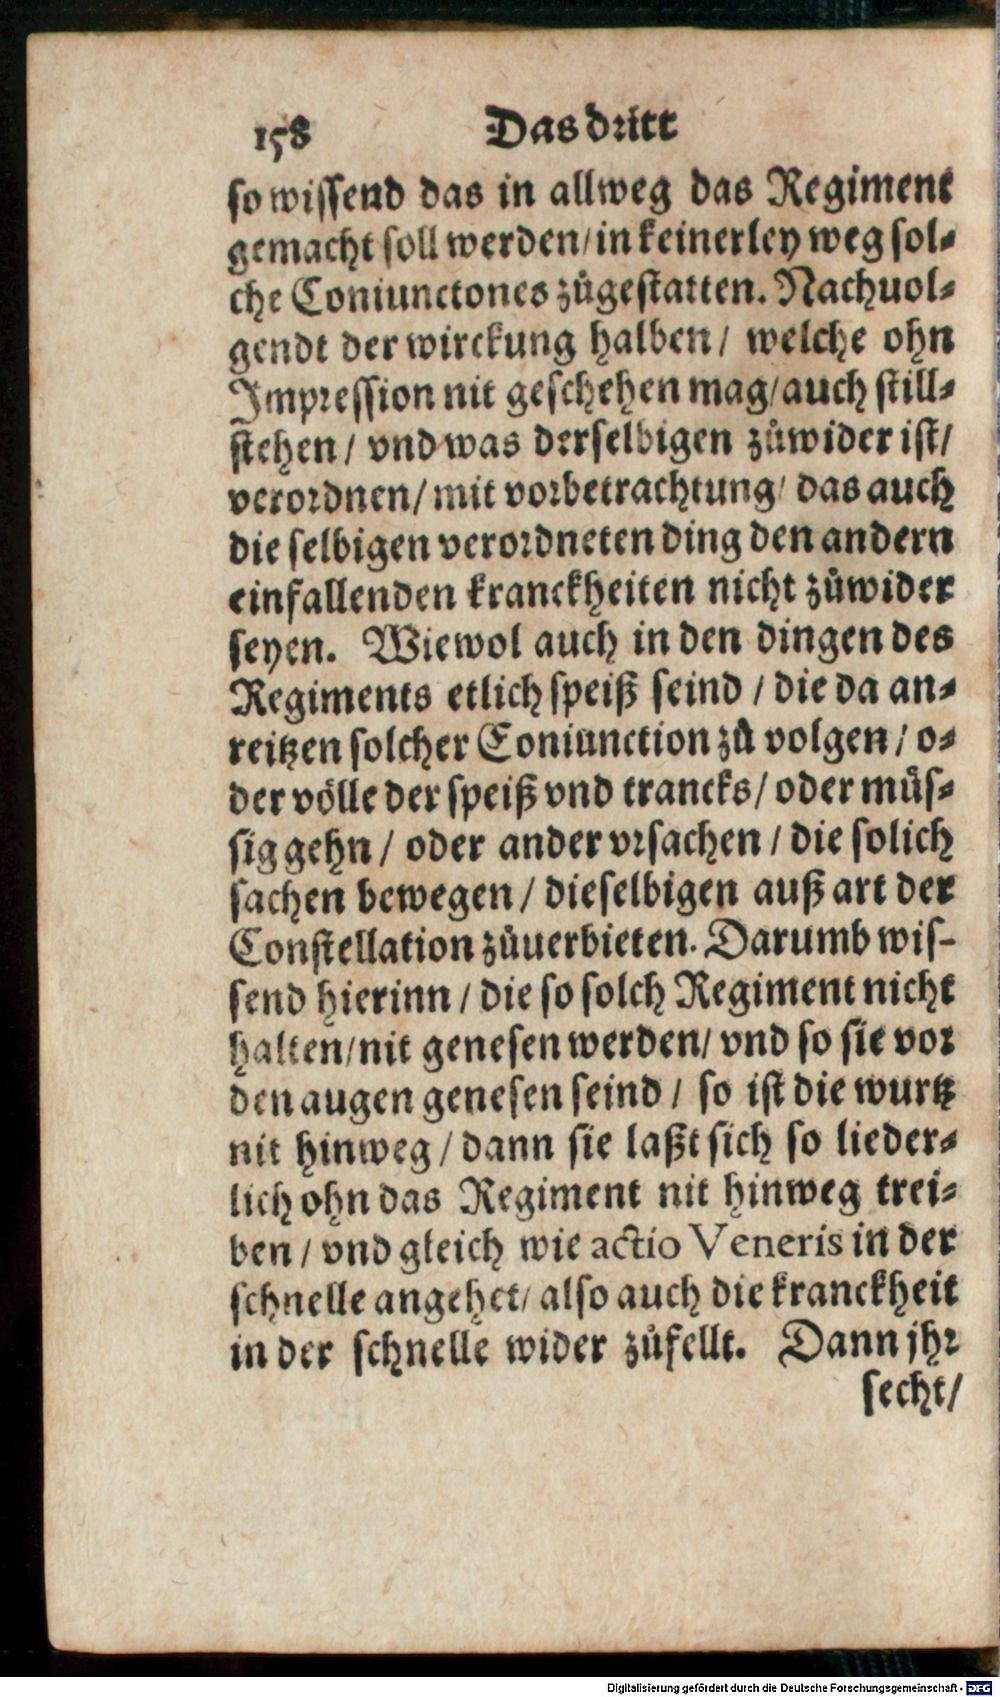 158 Das dritt
so wissend das in allweg das Regiment
gemacht soll werden/ in keinerley weg sol⸗
che Coniunctones zůgestatten. Nachuol⸗
gendt der wirckung halben / welche ohn
Impression nit geschehen mag/ auch still⸗
stehen / vnd was derselbigen zůwider ist/
verordnen/ mit vorbetrachtung/ das auch
die selbigen verordneten ding den andern
einfallenden kranckheiten nicht zůwider
seyen. Wiewol auch in den dingen des
Regiments etlich speiß seind / die da an⸗
reitzen solcher Coniunction zů volgen / o⸗
der völle der speiß vnd trancks/ oder müs⸗
sig gehn / oder ander vrsachen / die solich
sachen bewegen / dieselbigen auß art der
Constellation zůuerbieten. Darumb wis-
send hierinn / die so solch Regiment nicht
halten/ nit genesen werden/ vnd so sie vor
den augen genesen seind / so ist die wurtz
nit hinweg / dann sie laßt sich so lieder⸗
lich ohn das Regiment nit hinweg trei⸗
ben / vnd gleich wie actio Veneris in der
schnelle angehet/ also auch die kranckheit
in der schnelle wider zůfellt. Dann jhr
secht/
Digitalisierung gefördert durch die Deutsche Forschungsgemeinschaft - DFG